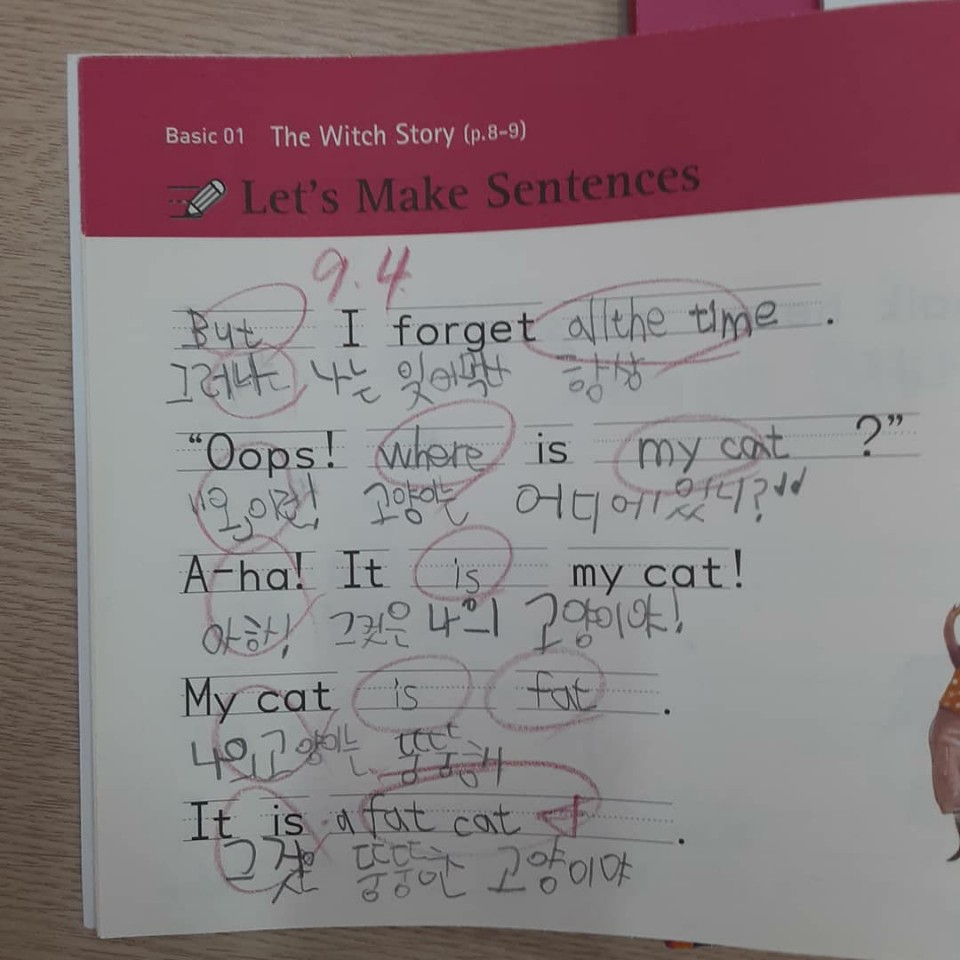 Basic 01 The Witch Story (p.8-9)
Let's Make Sentences
9.4
But I forget all the time .
그러나 나는 잊어먹어 항상
“Oops! where is my cat ?”
“오, 이런! 고양이는 어디에 있니?”
A-ha! It is my cat!
아하! 그것은 나의 고양이야!
My cat is fat .
나의 고양이는 뚱뚱해
It is a fat cat .
그것은 뚱뚱한 고양이야